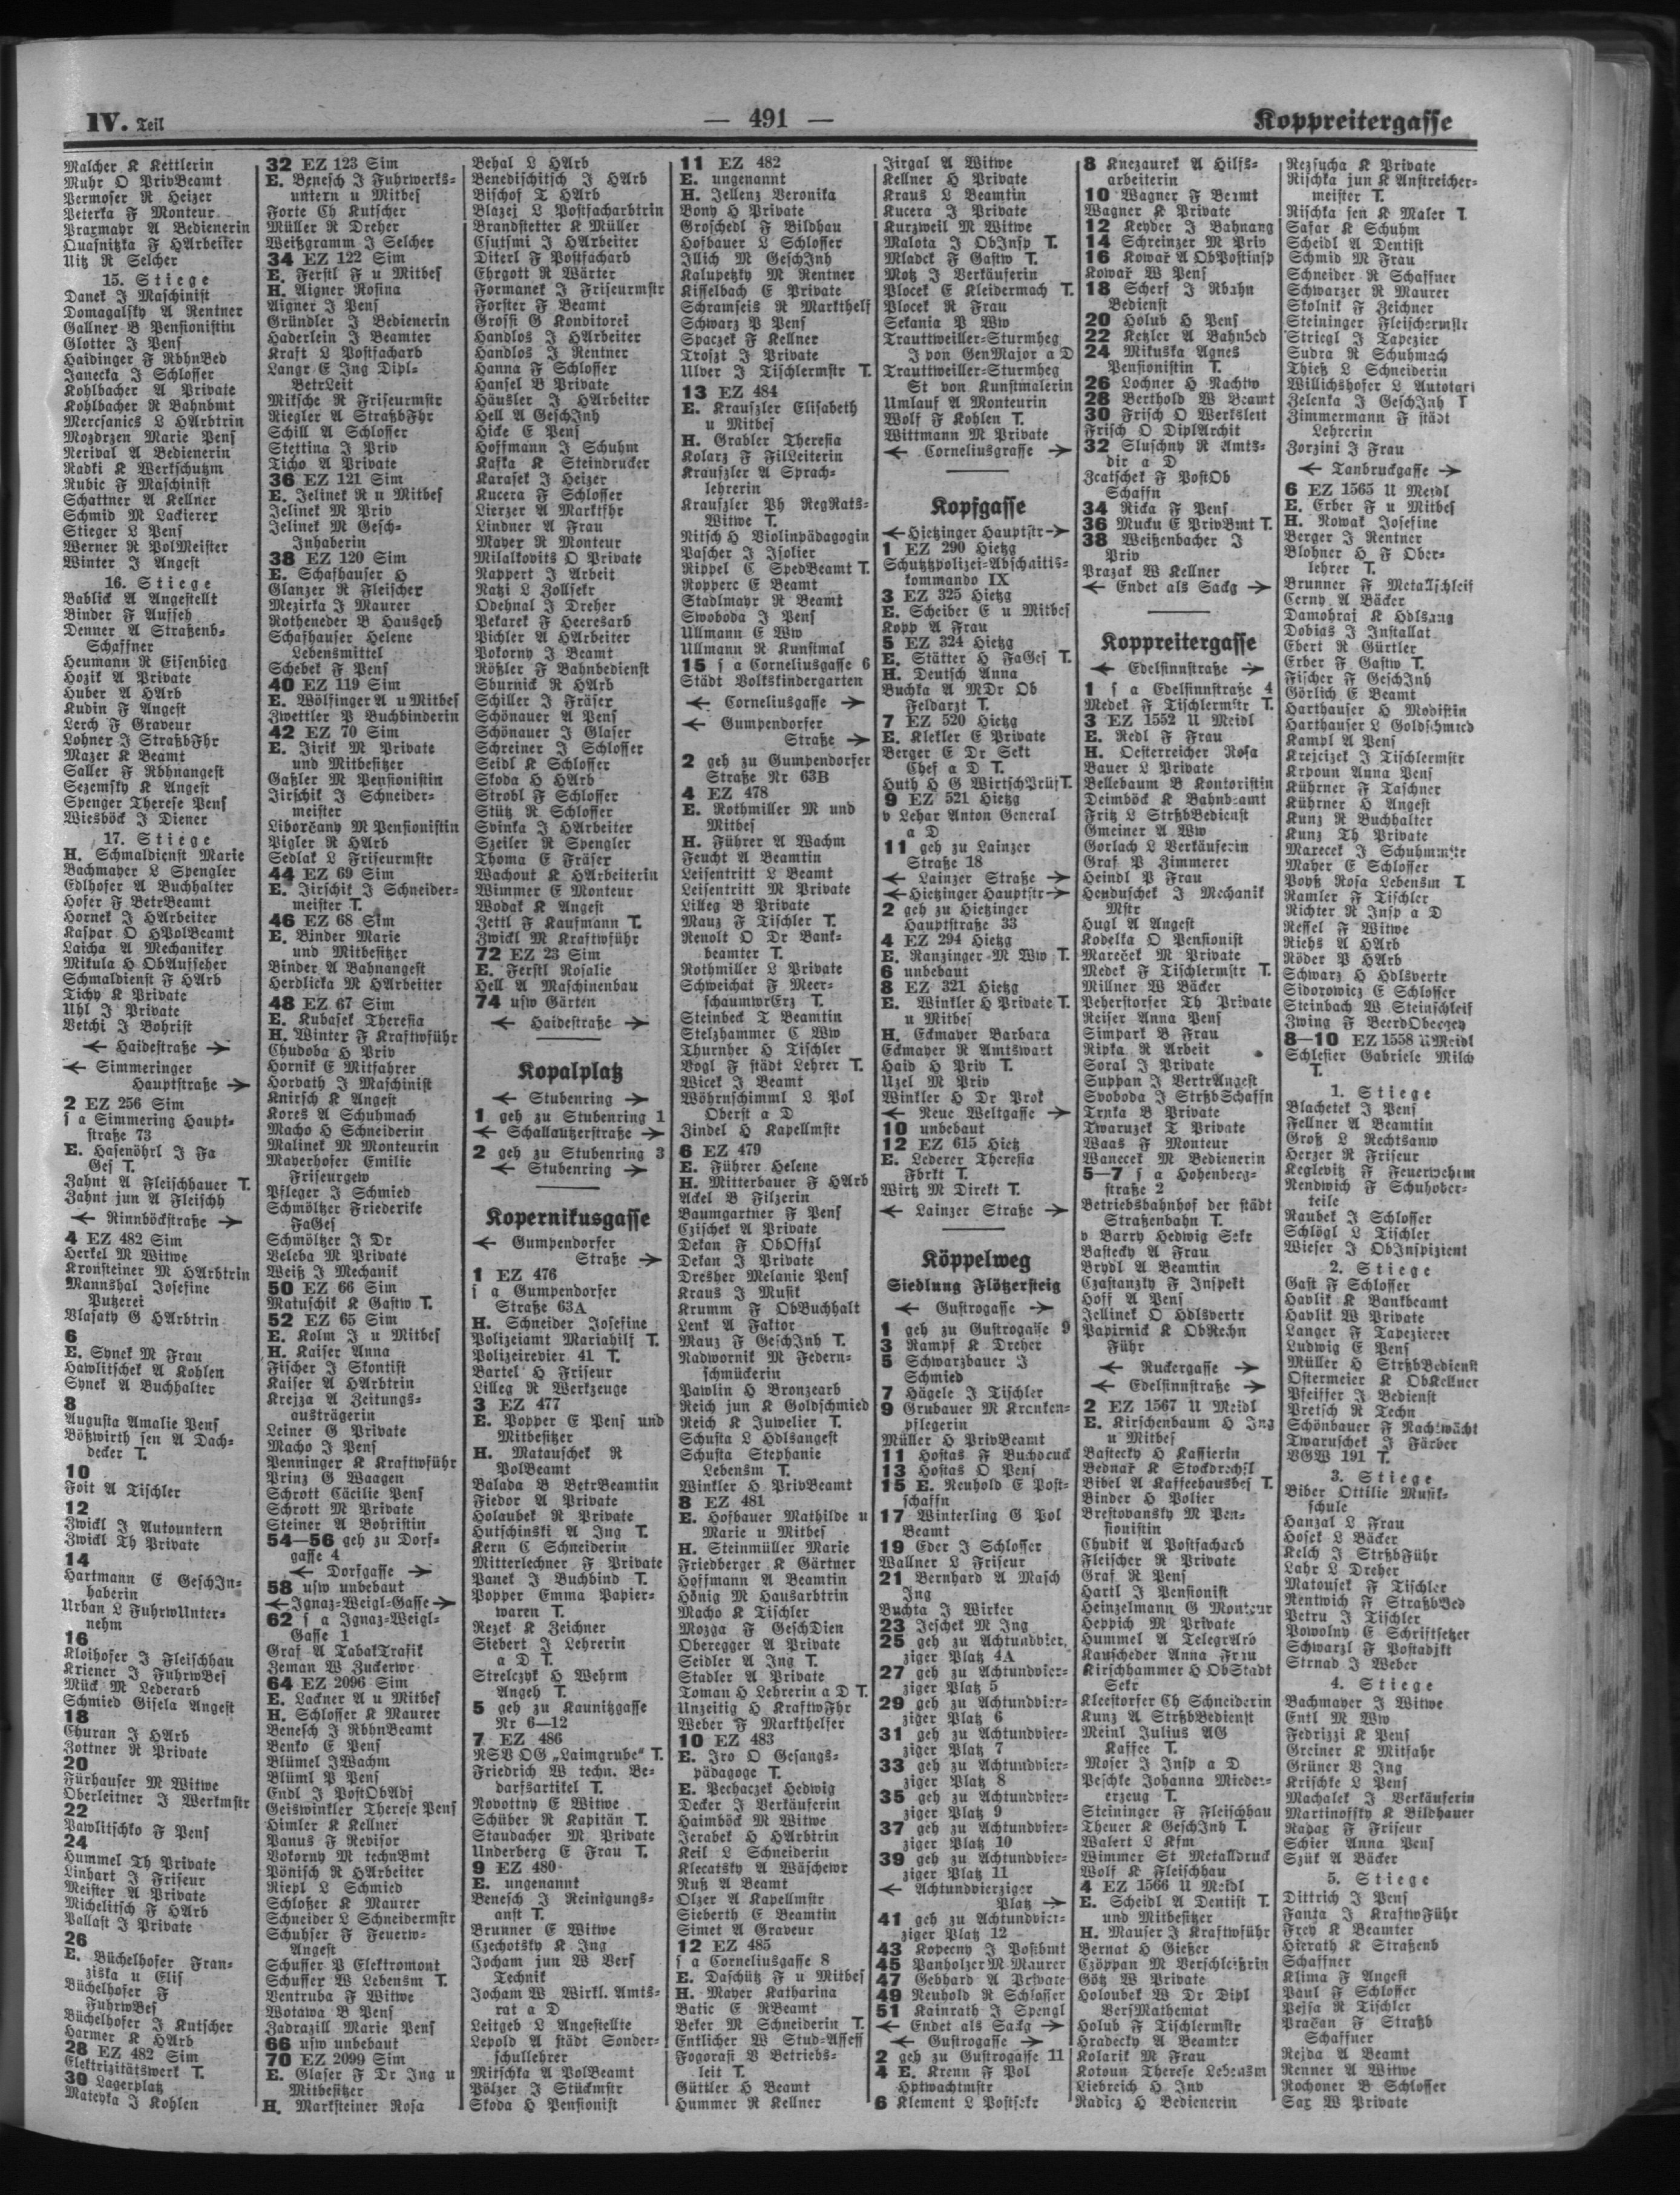 IV. Teil
— 491 —
Koppreitergasse
Malcher K Kettlerin
Muhr O PrivBeamt
Permoser R Heizer
Peterka F Monteur
Praxmayr A Bedienerin
Quasnitzka F HArbeiter
Uitz R Selcher
15. Stiege
Danek J Maschinist
Domagalsky A Rentner
Gallner B Pensionistin
Glotter J Pens
Haidinger F RbhnBed
Janecka J Schlosser
Kohlbacher A Private
Kohlbacher R Bahnbmt
Mercsanics L HArbtrin
Mozdrzen Marie Pens
Nerival A Bedienerin
Radki K Werkschutzm
Rubic F Maschinist
Schattner A Kellner
Schmid M Lackierer
Stieger L Pens
Werner R PolMeister
Winter J Angest
16. Stiege
Bablick A Angestellt
Binder F Aufseh
Denner A Straßenb-
Schaffner
Heumann R Eisenbieg
Hozik A Private
Huber A HArb
Kudin F Angest
Lerch F Graveur
Lohner J StraßbFhr
Mazer K Beamt
Saller F Rbhnangest
Sezemsky K Angest
Spenger Therese Pens
Wiesböck J Diener
17. Stiege
H. Schmaldienst Marie
Bachmayer L Spengler
Edlhofer A Buchhalter
Hofer F BetrBeamt
Hornek J HArbeiter
Kaspar O HPolBeamt
Laicha A Mechaniker
Mikula H ObAufseher
Schmaldienst F HArb
Tichy K Private
Uhl J Private
Vetchi J Bohrist
← Haidestraße →
← Simmeringer
Hauptstraße →
2 EZ 256 Sim
s a Simmering Haupt-
straße 73
E. Hasenöhrl J Fa
Ges T.
Zahnt A Fleischhauer T.
Zahnt jun A Fleischh
← Rinnböckstraße →
4 EZ 482 Sim
Herkel M Witwe
Kronsteiner M HArbtrin
Mannsbal Josefine
Putzerei
Vlasaty G HArbtrin
6
E. Synek M Frau
Hawlitschek A Kohlen
Synek A Buchhalter
8
Augusta Amalie Pens
Bößwirth sen A Dach-
decker T.
10
Foit A Tischler
12
Zwickl J Autountern
Zwickl Th Private
14
Hartmann E GeschIn-
haberin
Urban L FuhrwUnter-
nehm
16
Kloihofer J Fleischhau
Kriener J FuhrwBes
Mück M Lederarb
Schmied Gisela Angest
18
Churan J HArb
Zottner R Private
20
Fürhauser M Witwe
Oberleitner J Werkmstr
22
Pawlitschko F Pens
24
Hummel Th Private
Linhart J Friseur
Meister A Private
Michelitsch F HArb
Pallast J Private
26
E. Büchelhofer Fran-
ziska u Elis
Büchelhofer F
FuhrwBes
Büchelhofer J Kutscher
Harmer K HArb
28 EZ 482 Sim
Elektrizitätswerk T.
30 Lagerplatz
Mateyka J Kohlen
32 EZ 123 Sim
E. Benesch J Fuhrwerks-
untern u Mitbes
Forte Ch Kutscher
Müller R Dreher
Weißgramm J Selcher
34 EZ 122 Sim
E. Ferstl F u Mitbes
H. Aigner Rosina
Aigner J Pens
Gründler J Bedienerin
Haderlein J Beamter
Kraft L Postfacharb
Langr E Ing Dipl-
BetrLeit
Mitsche R Friseurmstr
Riegler A StraßbFhr
Schill A Schlosser
Stettina J Priv
Ticho A Private
36 EZ 121 Sim
E. Jelinek R u Mitbes
Jelinek M Priv
Jelinek M Gesch-
Inhaberin
38 EZ 120 Sim
E. Schafhauser H
Glanzer R Fleischer
Mezirka J Maurer
Rotheneder B Hausgeh
Schafhauser Helene
Lebensmittel
Schebek F Pens
40 EZ 119 Sim
E. Wölfinger A u Mitbes
Zwettler P Buchbinderin
42 EZ 70 Sim
E. Jirik M Private
und Mitbesitzer
Gaßler M Pensionistin
Jirschik J Schneider-
meister
Liborčany M Pensionistin
Pigler R HArb
Sedlak L Friseurmstr
44 EZ 69 Sim
E. Jirschik J Schneider-
meister T.
46 EZ 68 Sim
E. Binder Marie
und Mitbesitzer
Binder A Bahnangest
Herdlicka M HArbeiter
48 EZ 67 Sim
E. Kubasek Theresia
H. Winter F Kraftwführ
Chudoba H Priv
Hornik E Mitfahrer
Horvath J Maschinist
Knirsch K Angest
Kores A Schuhmach
Macho H Schneiderin
Malinek M Monteurin
Mayerhofer Emilie
Friseurgew
Pfleger J Schmied
Schmöltzer Friederike
FaGes
Schmöltzer J Dr
Veleba M Private
Weiß J Mechanik
50 EZ 66 Sim
Matuschik K Gastw T.
52 EZ 65 Sim
E. Kolm J u Mitbes
H. Kaiser Anna
Fischer J Skontist
Kaiser A HArbtrin
Krejza A Zeitungs-
austrägerin
Leiner G Private
Macho J Pens
Penninger K Kraftwführ
Prinz G Waagen
Schrott Cäcilie Pens
Schrott M Private
Steiner A Bohristin
54—56 geh zu Dorf-
gasse 4
← Dorfgasse →
58 usw unbebaut
← Ignaz-Weigl-Gasse →
62 s a Ignaz-Weigl-
Gasse 1
Graf A TabakTrafik
Zeman W Zuckerwr
64 EZ 2096 Sim
E. Lackner A u Mitbes
H. Schlosser K Maurer
Benesch J RbhnBeamt
Benko E Pens
Blümel J Wachm
Blüml P Pens
Endl J PostObAdj
Geiswinkler Therese Pens
Himler K Kellner
Panus F Revisor
Pokorny M technBmt
Pönisch R HArbeiter
Riepl L Schmied
Schloßer K Maurer
Schneider L Schneidermstr
Schuhser F Feuerw-
Angest
Schuffer P Elektromont
Schuffer W Lebensm T.
Ventruba F Witwe
Wotawa B Pens
Zadrazill Marie Pens
66 usw unbebaut
70 EZ 2099 Sim
E. Glaser F Dr Ing u
Mitbesitzer
H. Marksteiner Rosa
Behal L HArb
Benedischitsch J HArb
Bischof T HArb
Blazej L Postfacharbtrin
Brandstetter K Müller
Csutsmi J HArbeiter
Diterl F Postfacharb
Ehrgott R Wärter
Formanek J Friseurmstr
Forster F Beamt
Grossi G Konditorei
Handlos J HArbeiter
Handlos J Rentner
Hanna F Schlosser
Hansel B Private
Häusler J HArbeiter
Hell A GeschInh
Hicke E Pens
Hoffmann J Schuhm
Kafka K Steindrucker
Karasek J Heizer
Kucera F Schlosser
Lierzer A Marktfhr
Lindner A Frau
Mayer R Monteur
Milalkovits O Private
Nappert J Arbeit
Natzi L Zollsekr
Odehnal J Dreher
Pekarek F Heeresarb
Pichler A HArbeiter
Pokorny J Beamt
Rößler F Bahnbedienst
Sburnick R HArb
Schiller J Fräser
Schönauer A Pens
Schönauer J Glaser
Schreiner J Schlosser
Seidl K Schlosser
Skoda H HArb
Strobl F Schlosser
Stütz R Schlosser
Svinka J HArbeiter
Szeiler R Spengler
Thoma E Fräser
Wachout K HArbeiterin
Wimmer E Monteur
Wodak K Angest
Zettl F Kaufmann T.
Zwickl M Kraftwführ
72 EZ 23 Sim
E. Ferstl Rosalie
Hell A Maschinenbau
74 usw Gärten
← Haidestraße →
Kopalplatz
← Stubenring →
1 geh zu Stubenring 1
← Schallautzerstraße →
2 geh zu Stubenring 3
← Stubenring →
Kopernikusgasse
← Gumpendorfer
Straße →
1 EZ 476
s a Gumpendorfer
Straße 63A
H. Schneider Josefine
Polizeiamt Mariahilf T.
Polizeirevier 41 T.
Bartel H Friseur
Lilleg R Werkzeuge
3 EZ 477
E. Popper E Pens und
Mitbesitzer
H. Matauschek R
PolBeamt
Balada B BetrBeamtin
Fiedor A Private
Holaubek R Private
Hutschinski A Ing T.
Kern C Schneiderin
Mitterlechner F Private
Panek J Buchbind T.
Popper Emma Papier-
waren T.
Rezek K Zeichner
Siebert J Lehrerin
a D T.
Strelczyk H Wehrm
Angeh T.
5 geh zu Kaunitzgasse
Nr 6—12
7 EZ 486
NSV OG „Laimgrube“ T.
Friedrich W techn. Be-
darfsartikel T.
Novottny E Witwe
Schüber R Kapitän T.
Staudacher M Private
Underberg E Frau T.
9 EZ 480
E. ungenannt
Benesch J Reinigungs-
anst T.
Brunner E Witwe
Czechotsky K Ing
Jocham jun W Vers
Technik
Jocham W Wirkl. Amts-
rat a D
Leitgeb L Angestellte
Lepold A städt Sonder-
schullehrer
Mitschka A PolBeamt
Pölzer J Stückmstr
Skoda H Pensionist
11 EZ 482
E. ungenannt
H. Jellenz Veronika
Bony H Private
Groschedl F Bildhau
Hofbauer L Schlosser
Illich M GeschInh
Kalupetzky M Rentner
Kisselbach E Private
Schramseis R Markthelf
Schwarz P Pens
Spaczek F Kellner
Troszt J Private
Ulver J Tischlermstr T.
13 EZ 484
E. Krauszler Elisabeth
u Mitbes
H. Grabler Theresia
Kolarz F FilLeiterin
Krauszler A Sprach-
lehrerin
Krauszler Ph RegRats-
Witwe T.
Nitsch H Violinpädagogin
Pascher J Isolier
Rippel C SpedBeamt T.
Ropperc E Beamt
Stadlmayr R Beamt
Swoboda J Pens
Ullmann E Ww
Ullmann R Kunstmal
15 s a Corneliusgasse 6
Städt Volkskindergarten
← Corneliusgasse →
← Gumpendorfer
Straße →
2 geh zu Gumpendorfer
Straße Nr 63B
4 EZ 478
E. Rothmiller M und
Mitbes
H. Führer A Wachm
Feucht A Beamtin
Leisentritt L Beamt
Leisentritt M Private
Lilleg B Private
Mauz F Tischler T.
Renolt O Dr Bank-
beamter T.
Rothmiller L Private
Schweichat F Meer-
schaumwrErz T.
Steinbeck T Beamtin
Stelzhammer C Ww
Thurnher H Tischler
Vogl F städt Lehrer T.
Wicek J Beamt
Wöhrnschimml L Pol
Oberst a D
Zindel H Kapellmstr
6 EZ 479
E. Führer Helene
H. Mitterbauer F HArb
Ackel B Filzerin
Baumgartner F Pens
Czischek A Private
Dekan F ObOffzl
Dekan J Private
Dresher Melanie Pens
Kraus J Musik
Krumm F ObBuchhalt
Lenk A Faktor
Mauz F GeschInh T.
Nadwornik M Federn-
schmückerin
Pawlin H Bronzearb
Reich jun K Goldschmied
Reich K Juwelier T.
Schusta L Hdlsangest
Schusta Stephanie
Lebensm T.
Winkler H PrivBeamt
8 EZ 481
E. Hofbauer Mathilde u
Marie u Mitbes
H. Steinmüller Marie
Friedberger K Gärtner
Hoffmann A Beamtin
Hönig M Hausarbtrin
Macho K Tischler
Mozga F GeschDien
Oberegger A Private
Seidler A Ing T.
Stadler A Private
Toman H Lehrerin a D T.
Unzeitig H KraftwFhr
Weber F Markthelfer
10 EZ 483
E. Jro O Gesangs-
pädagoge T.
E. Pechaczek Hedwig
Decker J Verkäuferin
Haimböck M Witwe
Jerabek H HArbtrin
Keil L Schneiderin
Klecatsky A Wäschewr
Nuß A Beamt
Olzer A Kapellmstr
Sieberth E Beamtin
Simet A Graveur
12 EZ 485
s a Corneliusgasse 8
E. Daschütz F u Mitbes
H. Mayer Katharina
Batic E RBeamt
Beker M Schneiderin T.
Entlicher W Stud-Assess
Fogorasi V Betriebs-
leit T.
Güttler H Beamt
Hummer R Kellner
Jirgal A Witwe
Kellner H Private
Kraus L Beamtin
Kucera J Private
Kurzweil M Witwe
Malota J ObInsp T.
Mladek F Gastw T.
Motz J Verkäuferin
Plocek E Kleidermach T.
Plocek R Frau
Sekania P Ww
Trauttweiller-Sturmheg
J von GenMajor a D
Trauttweiller-Sturmheg
St von Kunstmalerin
Umlauf A Monteurin
Wolf F Kohlen T.
Wittmann M Private
← Corneliusgrasse →
Kopfgasse
← Hietzinger Hauptstr →
1 EZ 290 Hietzg
Schutzpolizei-Abschnitts-
kommando IX
3 EZ 325 Hietzg
E. Scheiber E u Mitbes
Kopp A Frau
5 EZ 324 Hietzg
E. Stätter H FaGes T.
H. Deutsch Anna
Buchka A MDr Ob
Feldarzt T.
7 EZ 520 Hietzg
E. Klekler E Private
Berger E Dr Sekt
Chef a D T.
Huth H G WirtschPrüf T.
9 EZ 521 Hietzg
v Lehar Anton General
a D
11 geh zu Lainzer
Straße 18
← Lainzer Straße →
← Hietzinger Hauptstr →
2 geh zu Hietzinger
Hauptstraße 33
4 EZ 294 Hietzg
E. Ranzinger M Ww T.
6 unbebaut
8 EZ 321 Hietzg
E. Winkler H Private T.
u Mitbes
H. Eckmayer Barbara
Eckmayer R Amtswart
Haid H Priv T.
Uzel M Priv
Winkler H Dr Prok
← Neue Weltgasse →
10 unbebaut
12 EZ 615 Hietz
E. Lederer Theresia
Fbrkt T.
Wirtz M Direkt T.
← Lainzer Straße →
Köppelweg
Siedlung Flötzersteig
← Gustrogasse →
1 geh zu Gustrogasse 9
3 Rampf K Dreher
5 Schwarzbauer J
Schmied
7 Hägele J Tischler
9 Grubauer M Kranken-
pflegerin
Müller H PrivBeamt
11 Hostas F Buchdruck
13 Hostas O Pens
15 E. Neuhold E Post-
schaffn
17 Winterling G Pol
Beamt
19 Eder J Schlosser
Wallner L Friseur
21 Bernhard A Masch
Ing
Buchta J Wirker
23 Jeschek M Ing
25 geh zu Achtundvier-
ziger Platz 4A
27 geh zu Achtundvier-
ziger Platz 5
29 geh zu Achtundvier-
ziger Platz 6
31 geh zu Achtundvier-
ziger Platz 7
33 geh zu Achtundvier-
ziger Platz 8
35 geh zu Achtundvier-
ziger Platz 9
37 geh zu Achtundvier-
ziger Platz 10
39 geh zu Achtundvier-
ziger Platz 11
← Achtundvierziger
Platz →
41 geh zu Achtundvier-
ziger Platz 12
43 Kopecny J Postbmt
45 Panholzer M Maurer
47 Gebhard A Private
49 Neuhold R Schlosser
51 Kainrath J Spengl
← Endet als Sackg →
← Gustrogasse →
2 geh zu Gustrogasse 11
4 E. Krenn F Pol
Hptwachtmstr
6 Klement L Postsekr
8 Knezaurek A Hilfs-
arbeiterin
10 Wagner F Beamt
Wagner K Private
12 Keyder J Bahnang
14 Schreinzer M Priv
16 Kowař A ObPostinsp
Kowař W Pens
18 Scherf J Rbahn
Bedienst
20 Holub H Pens
22 Ketzler A Bahnbed
24 Mikuska Agnes
Pensionistin T.
26 Lochner H Nachtw
28 Berthold W Beamt
30 Frisch O Werksleit
Frisch O DiplArchit
32 Sluschny R Amts-
dir a D
Zcatschek F PostOb
Schaffn
34 Ricka F Pens
36 Mucku E PrivBmt T.
38 Weißenbacher J
Priv
Prazak W Kellner
← Endet als Sackg →
Koppreitergasse
← Edelsinnstraße →
1 s a Edelsinnstraße 4
Medek F Tischlermstr T.
3 EZ 1552 U Meidl
E. Redl F Frau
H. Oesterreicher Rosa
Bauer L Private
Bellebaum B Kontoristin
Deimböck K Bahnbeamt
Fritz L StrßbBedienst
Gmeiner A Ww
Gorlach L Verkäuferin
Graf P Zimmerer
Heindl P Frau
Henduschek J Mechanik
Mstr
Hugl A Angest
Kodelka O Pensionist
Mareček M Private
Medek F Tischlermstr T.
Millner W Bäcker
Peherstorfer Th Private
Reiser Anna Pens
Simpark B Frau
Ripka R Arbeit
Soral J Private
Suppan J VertrAngest
Svoboda J StrßbSchaffn
Trnka B Private
Twaruzek T Private
Waas F Monteur
Wanecek M Bedienerin
5—7 s a Hohenberg-
straße 2
Betriebsbahnhof der städt
Straßenbahn T.
v Barry Hedwig Sekr
Bastecky A Frau
Brydl A Beamtin
Czastanzky F Inspekt
Hoff A Pens
Jellinek O Hdlsvertr
Papirnick K ObRechn
Führ
← Ruckergasse →
← Edelsinnstraße →
2 EZ 1567 U Meidl
E. Kirschenbaum H Ing
u Mitbes
Bastecky H Kassierin
Bednař K Stockdrechsl
Bibel A Kaffeehausbes T.
Binder H Polier
Brestovansky M Pen-
sionistin
Chudik A Postfacharb
Fleischer R Private
Graf R Pens
Hartl J Pensionist
Heinzelmann G Monteur
Heppich M Private
Hummel A TelegrArb
Kauscheder Anna Frau
Kirschhammer H ObStadt
Sekr
Kleestorfer Ch Schneiderin
Kunz A StrßbBedienst
Meinl Julius AG
Kaffee T.
Moser J Insp a D
Peschke Johanna Mieder-
erzeug T.
Steininger F Fleischhau
Theuer K GeschInh T.
Walert L Kfm
Wimmer St Metalldruck
Wolf K Fleischhau
4 EZ 1566 U Meidl
E. Scheidl A Dentist T.
und Mitbesitzer
H. Mauser J Kraftwführ
Bernat H Gießer
Czöppan M Verschleißrin
Götz W Private
Holoubek W Dr Dipl
VersMathemat
Holub F Tischlermstr
Hradecky A Beamter
Kolarik M Frau
Kotoun Therese Lebensm
Liebreich H Inv
Radicz H Bedienerin
Rezsucha K Private
Rischka jun K Anstreicher-
meister T.
Rischka sen K Maler T.
Safar K Schuhm
Scheidl A Dentist
Schmid M Frau
Schneider R Schaffner
Schwarzer R Maurer
Skolnik F Zeichner
Steininger Fleischermstr
Striegl J Tapezier
Sudra R Schuhmach
Thieß L Schneiderin
Willichshofer L Autotaxi
Zelenka J GeschInh T
Zimmermann F städt
Lehrerin
Zorzini J Frau
← Tanbruckgasse →
6 EZ 1565 U Meidl
E. Erber F u Mitbes
H. Nowak Josefine
Berger J Rentner
Blohner H F Ober-
lehrer T.
Brunner F Metallschleif
Cerny A Bäcker
Damohraj K Hdlsang
Dobias J Installat
Ebert R Gürtler
Erber F Gastw T.
Fischer F GeschInh
Görlich E Beamt
Harthauser H Modistin
Harthauser L Goldschmied
Kampl A Pens
Krejcizek J Tischlermstr
Krpoun Anna Pens
Kührner F Taschner
Kührner H Angest
Kunz R Buchhalter
Kunz Th Private
Marecek J Schuhmmstr
Mayer E Schlosser
Poyß Rosa Lebensm T.
Ramler F Tischler
Richter R Insp a D
Ressel F Witwe
Riehs A HArb
Röder P HArb
Schwarz H Hdlsvertr
Sidorowicz E Schlosser
Steinbach W Steinschleif
Zwing F BeerdObergeh
8—10 EZ 1558 U Meidl
Schlesier Gabriele Milch
T.
1. Stiege
Blachetek J Pens
Fellner A Beamtin
Groß L Rechtsanw
Herzer R Friseur
Keglevitz F Feuerwehrm
Rendwich F Schuhober-
teile
Raubek J Schlosser
Schlögl L Tischler
Wieser J ObInspizient
2. Stiege
Gast F Schlosser
Havlik K Bankbeamt
Havlik W Private
Langer F Tapezierer
Ludwig E Pens
Müller H StrßbBedienst
Ostermeier K ObKellner
Pfeiffer J Bedienst
Pretsch R Techn
Schönbauer F Nachtwächt
Twaruschek J Färber
VGW 191 T.
3. Stiege
Biber Ottilie Musik-
schule
Hanzal L Frau
Hosek L Bäcker
Kelch J StrßbFühr
Lahr L Dreher
Matousek F Tischler
Nentwich F StraßbBed
Petru J Tischler
Powolny E Schriftsetzer
Schwarzl F Postadjkt
Strnad J Weber
4. Stiege
Bachmayer J Witwe
Entl M Ww
Fedrizzi K Pens
Greiner K Mitfahr
Grüner V Ing
Krischke L Pens
Machalek J Verkäuferin
Martinoffsky K Bildhauer
Radax F Friseur
Schier Anna Pens
Szük A Bäcker
5. Stiege
Dittrich J Pens
Fanta J KraftwFühr
Frey K Beamter
Hierath K Straßenb
Schaffner
Klima F Angest
Paul F Schlosser
Pejsa R Tischler
Pračan F Straßb
Schaffner
Rejda A Beamt
Renner A Witwe
Rochoner B Schlosser
Sax W Private